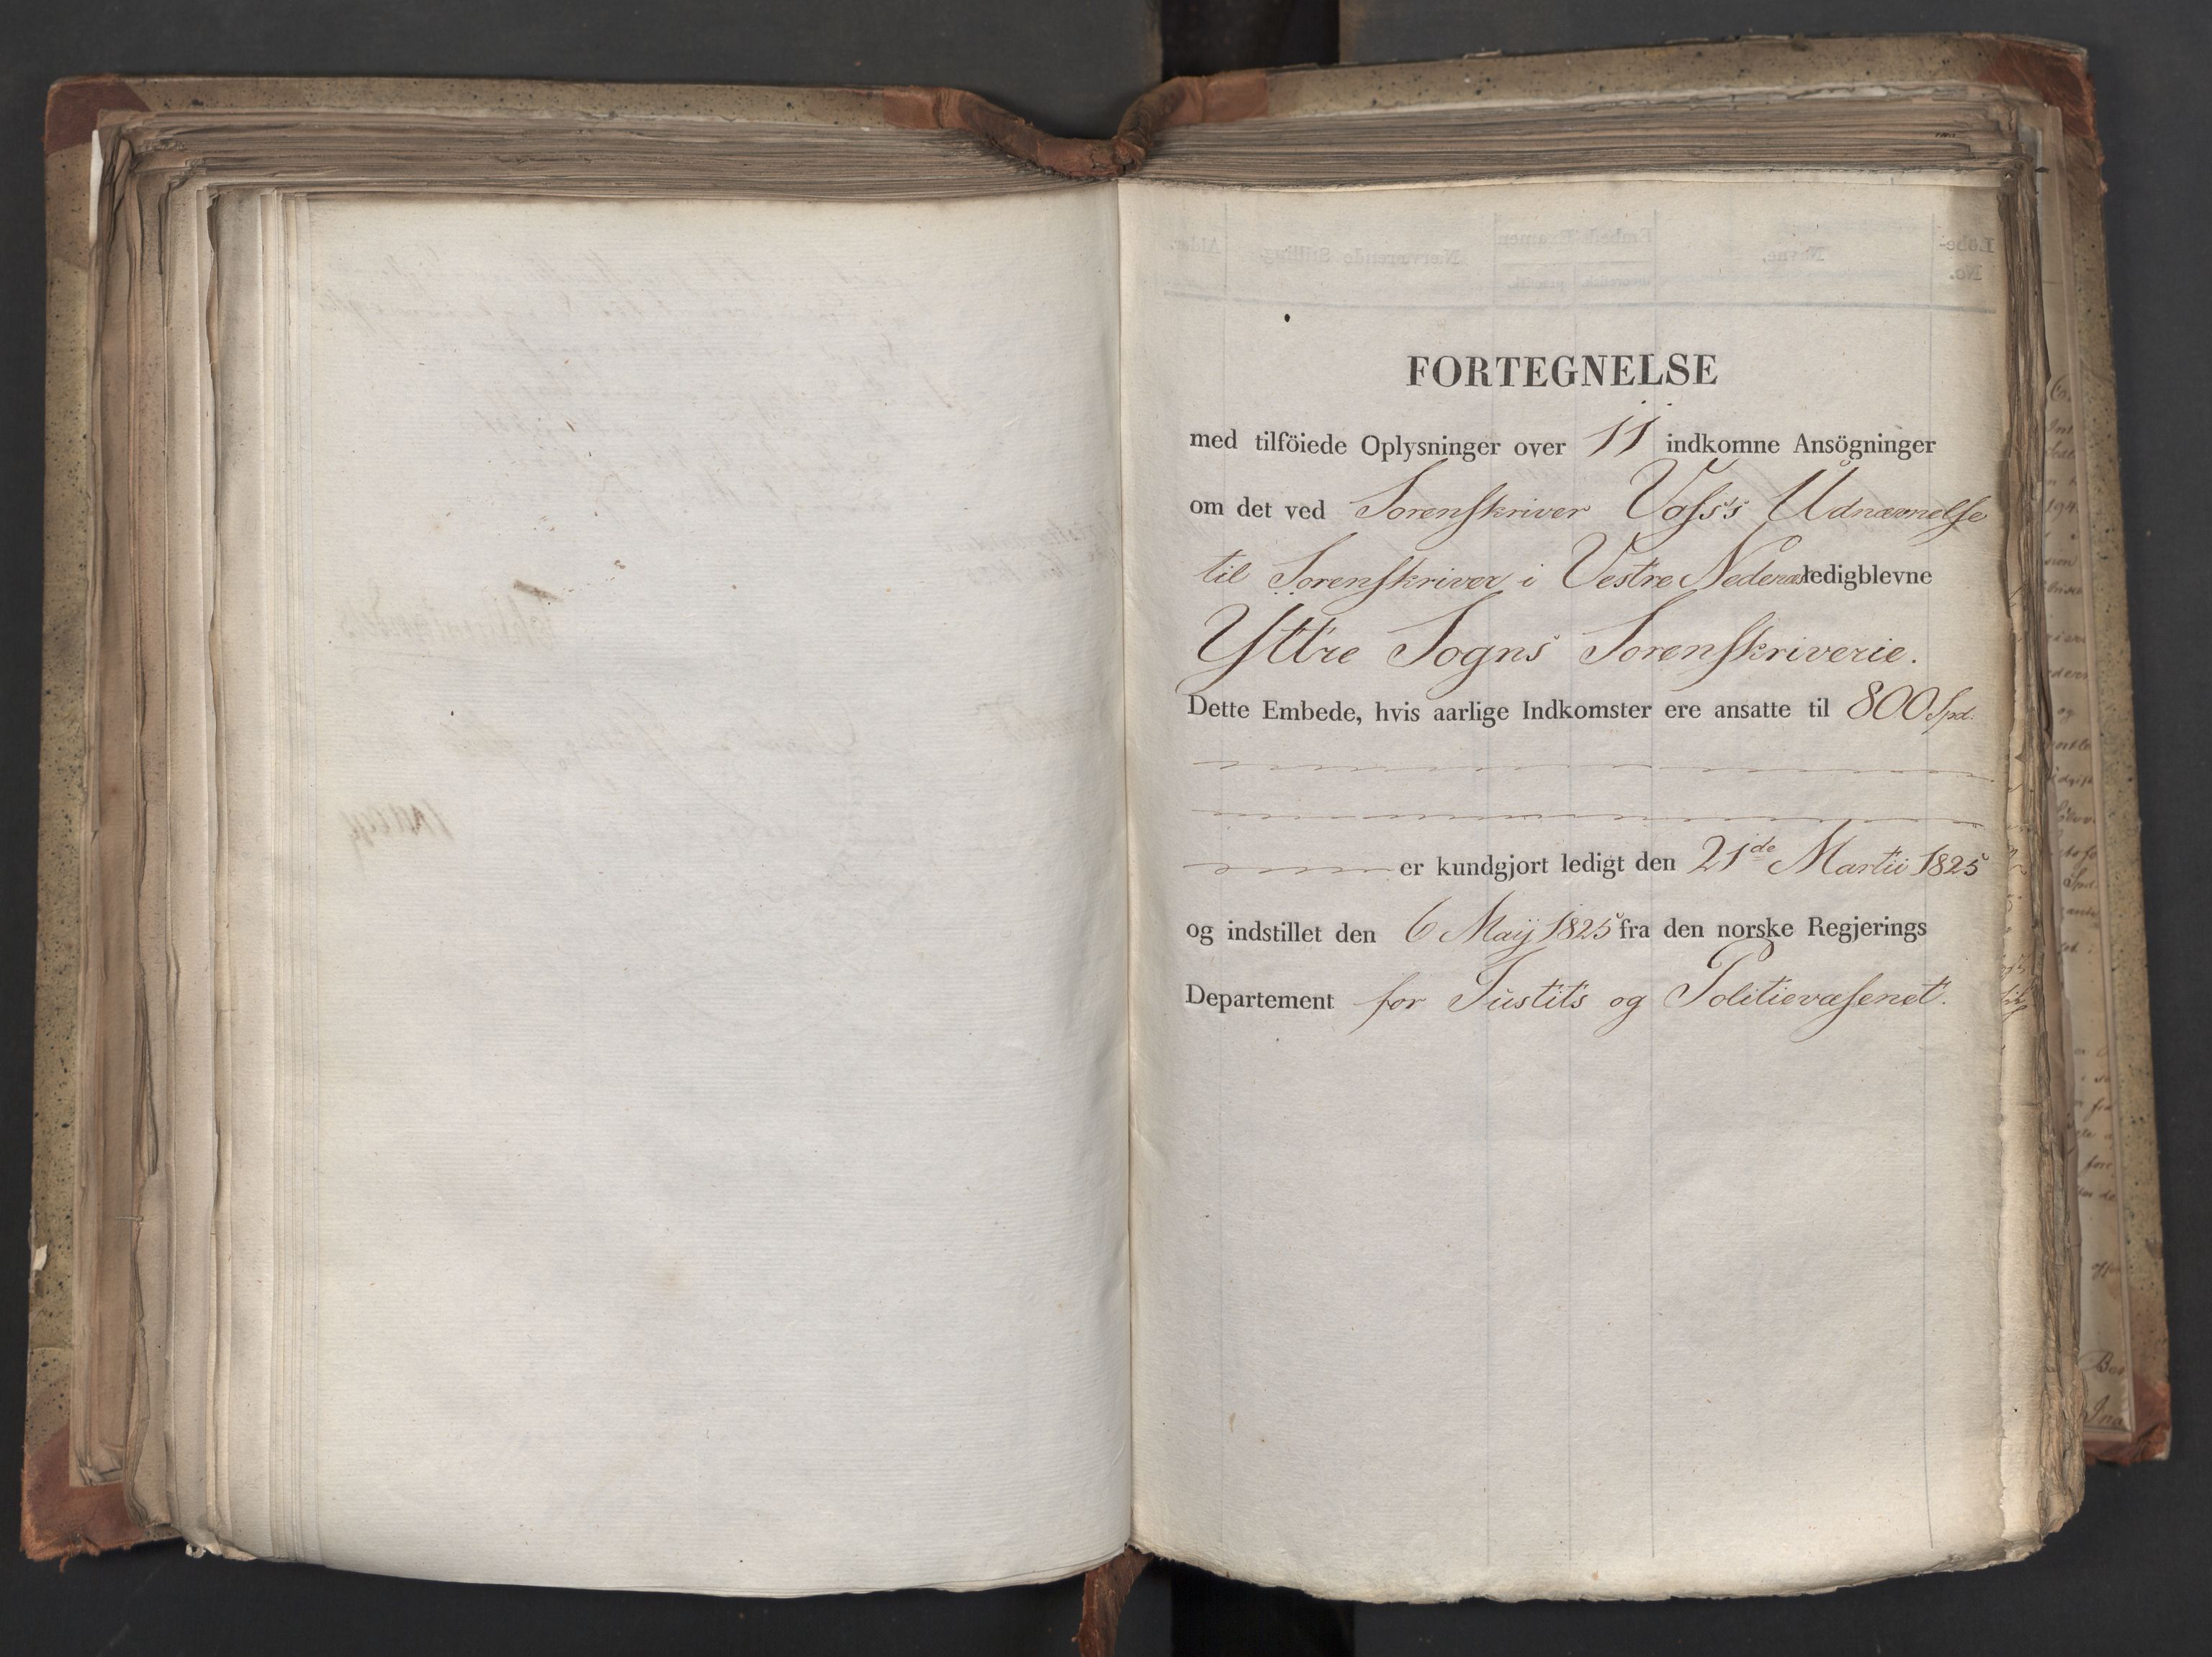 FORTEGNELSE
med tilföiede Oplysninger over 11 indkomne Ansögninger
om det ved Sorenskriver Voss's Udnævnelse
til Sorenskriver i Vestre Nedenæs ledigblevne
Yttre Sogns Sorenskriverie.
Dette Embede, hvis aarlige Indkomster ere ansatte til 800 Spd.
er kundgjort ledigt den 21de Martii 1825
og indstillet den 6 Maij 1825 fra den norske Regjerings
Departement for Justits og Politievæsenet.